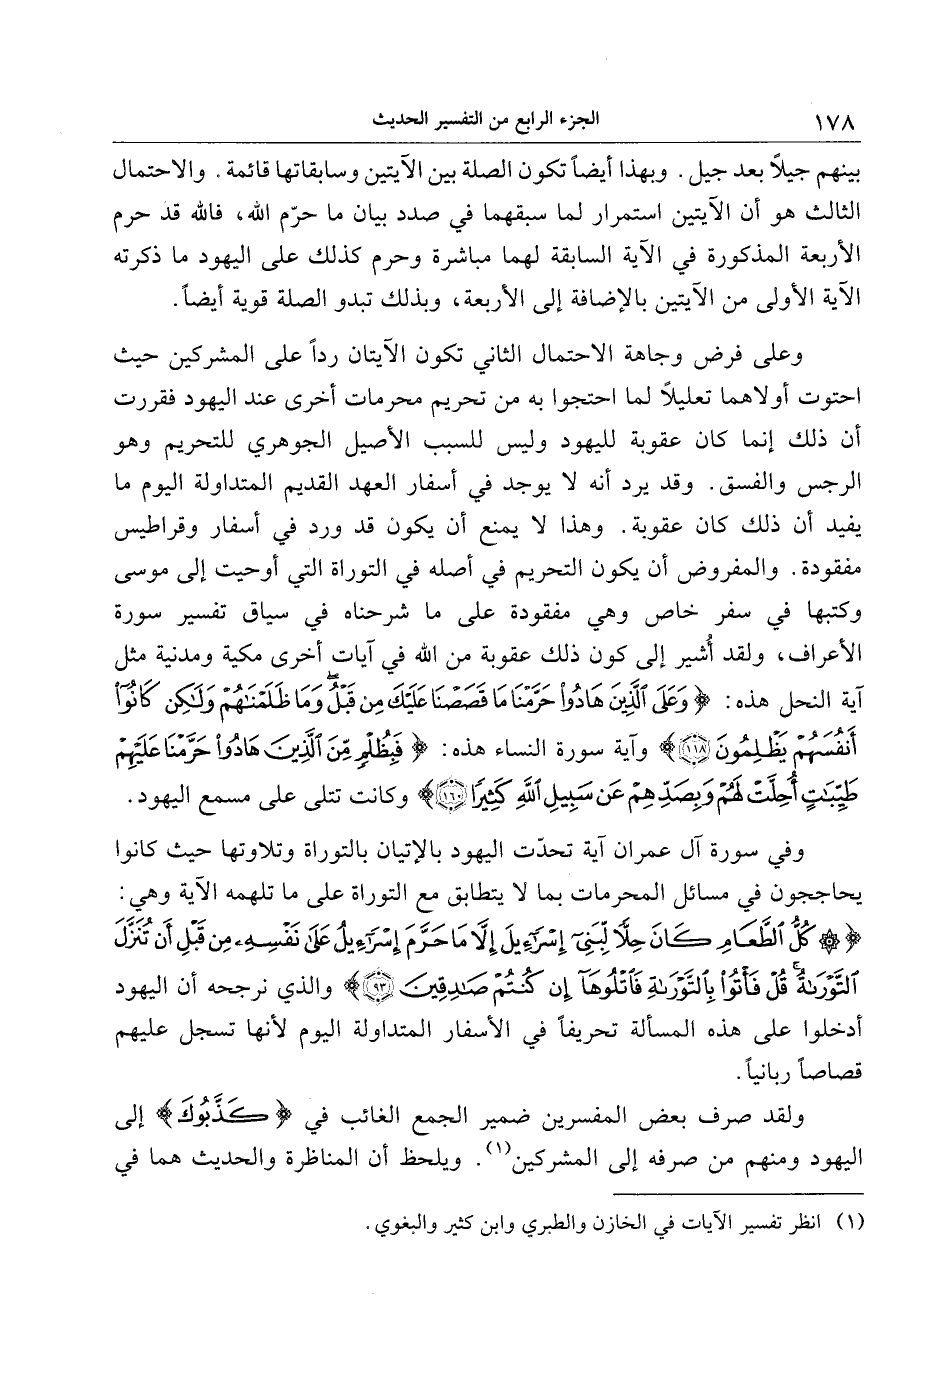 ١٧٨ الجزء الرابع من التفسير الحديث
بينهم جيلاً بعد جيل. وبهذا أيضاً تكون الصلة بين الآيتين وسابقاتها قائمة. والاحتمال
الثالث هو أن الآيتين استمرار لما سبقهما في صدد بيان ما حرّم الله، فالله قد حرم
الأربعة المذكورة في الآية السابقة لهما مباشرة وحرم كذلك على اليهود ما ذكرته
الآية الأولى من الآيتين بالإضافة إلى الأربعة، وبذلك تبدو الصلة قوية أيضاً.
وعلى فرض وجاهة الاحتمال الثاني تكون الآيتان رداً على المشركين حيث
احتوت أولاهما تعليلاً لما احتجوا به من تحريم محرمات أخرى عند اليهود فقررت
أن ذلك إنما كان عقوبة لليهود وليس للسبب الأصيل الجوهري للتحريم وهو
الرجس والفسق. وقد يرد أنه لا يوجد في أسفار العهد القديم المتداولة اليوم ما
يفيد أن ذلك كان عقوبة. وهذا لا يمنع أن يكون قد ورد في أسفار وقراطيس
مفقودة. والمفروض أن يكون التحريم في أصله في التوراة التي أوحيت إلى موسى
وكتبها في سفر خاص وهي مفقودة على ما شرحناه في سياق تفسير سورة
الأعراف، ولقد أُشير إلى كون ذلك عقوبة من الله في آيات أخرى مكية ومدنية مثل
آية النحل هذه: ﴿وَعَلَى ٱلَّذِينَ هَادُوا۟ حَرَّمْنَا مَا قَصَصْنَا عَلَيْكَ مِن قَبْلُ ۖ وَمَا ظَلَمْنَٰهُمْ وَلَٰكِن كَانُوٓا۟
أَنفُسَهُمْ يَظْلِمُونَ ١١٨﴾ وآية سورة النساء هذه: ﴿فَبِظُلْمٍ مِّنَ ٱلَّذِينَ هَادُوا۟ حَرَّمْنَا عَلَيْهِمْ
طَيِّبَٰتٍ أُحِلَّتْ لَهُمْ وَبِصَدِّهِمْ عَن سَبِيلِ ٱللَّهِ كَثِيرًا ١٦٠﴾ وكانت تتلى على مسمع اليهود.
وفي سورة آل عمران آية تحدّت اليهود بالإتيان بالتوراة وتلاوتها حيث كانوا
يحاججون في مسائل المحرمات بما لا يتطابق مع التوراة على ما تلهمه الآية وهي:
﴿۞ كُلُّ ٱلطَّعَامِ كَانَ حِلًّا لِّبَنِىٓ إِسْرَٰٓءِيلَ إِلَّا مَا حَرَّمَ إِسْرَٰٓءِيلُ عَلَىٰ نَفْسِهِۦ مِن قَبْلِ أَن تُنَزَّلَ
ٱلتَّوْرَىٰةُ ۗ قُلْ فَأْتُوا۟ بِٱلتَّوْرَىٰةِ فَٱتْلُوهَآ إِن كُنتُمْ صَٰدِقِينَ ٩٣﴾ والذي نرجحه أن اليهود
أدخلوا على هذه المسألة تحريفاً في الأسفار المتداولة اليوم لأنها تسجل عليهم
قصاصاً ربانياً.
ولقد صرف بعض المفسرين ضمير الجمع الغائب في ﴿كَذَّبُوكَ﴾ إلى
اليهود ومنهم من صرفه إلى المشركين(١). ويلحظ أن المناظرة والحديث هما في
(١) انظر تفسير الآيات في الخازن والطبري وابن كثير والبغوي.